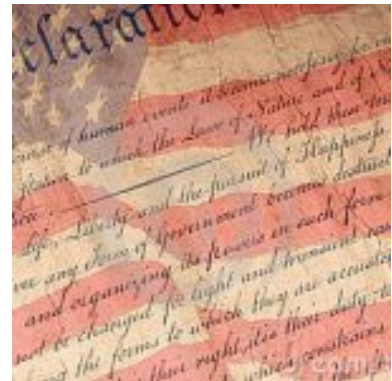 eclaration
course of human events it becomes necessary for
station to which the Laws of Nature and of N
We hold these
Life, Liberty and the pursuit of Happiness
ver any Form of Government becomes destruct
and organizing its powers in such form
not be changed for light and transient cau
ing the forms to which they are accusto
their right, it is their duty, to
which constrains